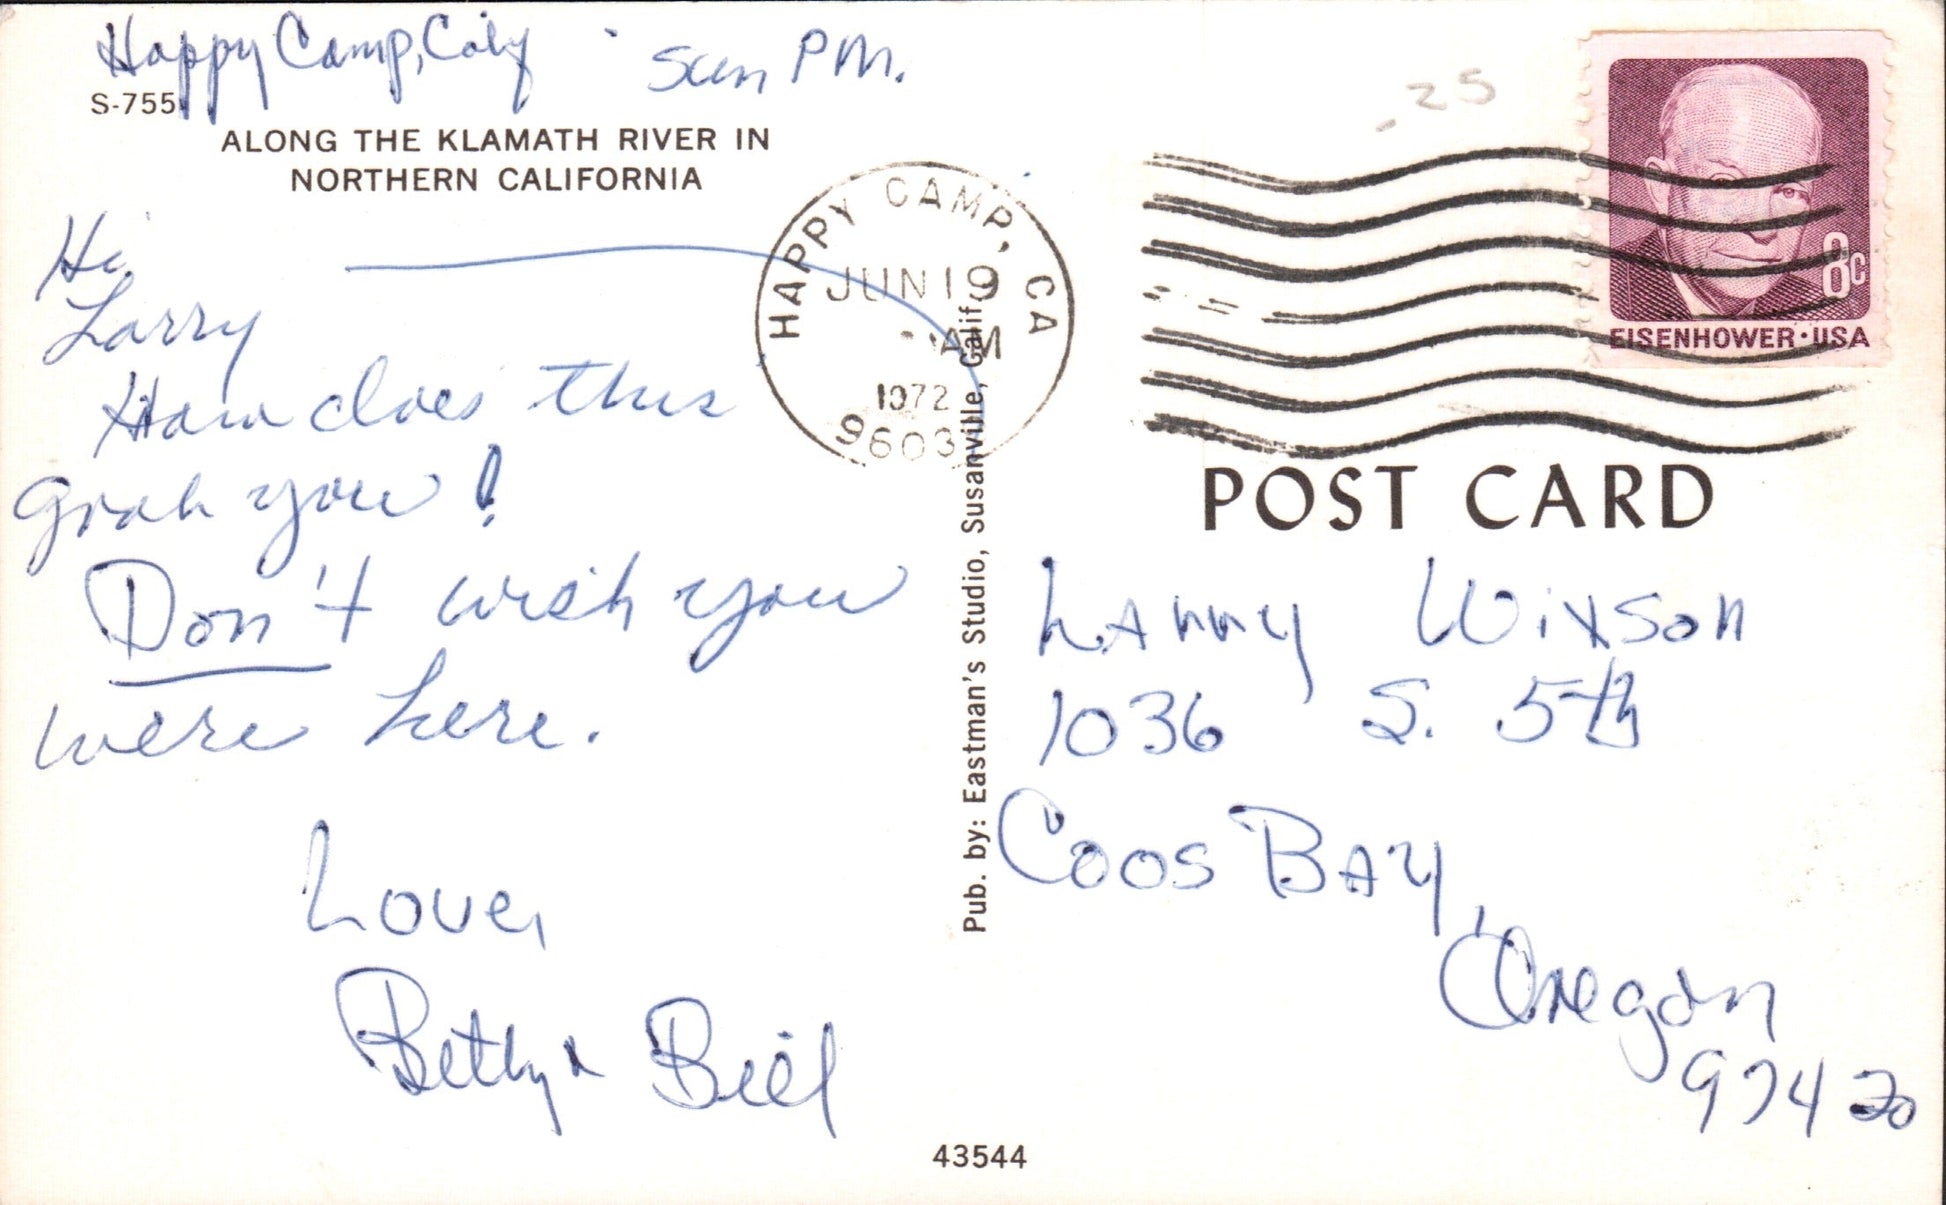 Happy Camp, Calif Sun PM.
S-755
ALONG THE KLAMATH RIVER IN
NORTHERN CALIFORNIA
Hi
Larry
How does this
grab you!
Don't wish you
were here.
Love,
Betty & Bill
43544
Pub. by: Eastman's Studio, Susanville, Calif.
HAPPY CAMP, CA
JUN 19
AM
1972
9603
25
8c
EISENHOWER·USA
POST CARD
Larry Wixson
1036 S. 5th
Coos Bay,
Oregon
97420